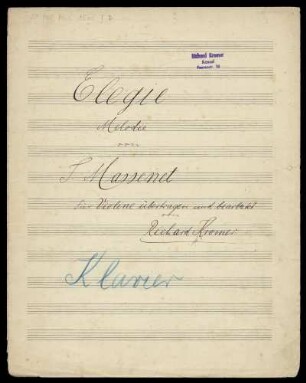 Richard Kromer
Kassel
Elegie
Melodie
von
J. Massenet
Für Violine übertragen und bearbeitet
von
Richard Kromer
Klavier